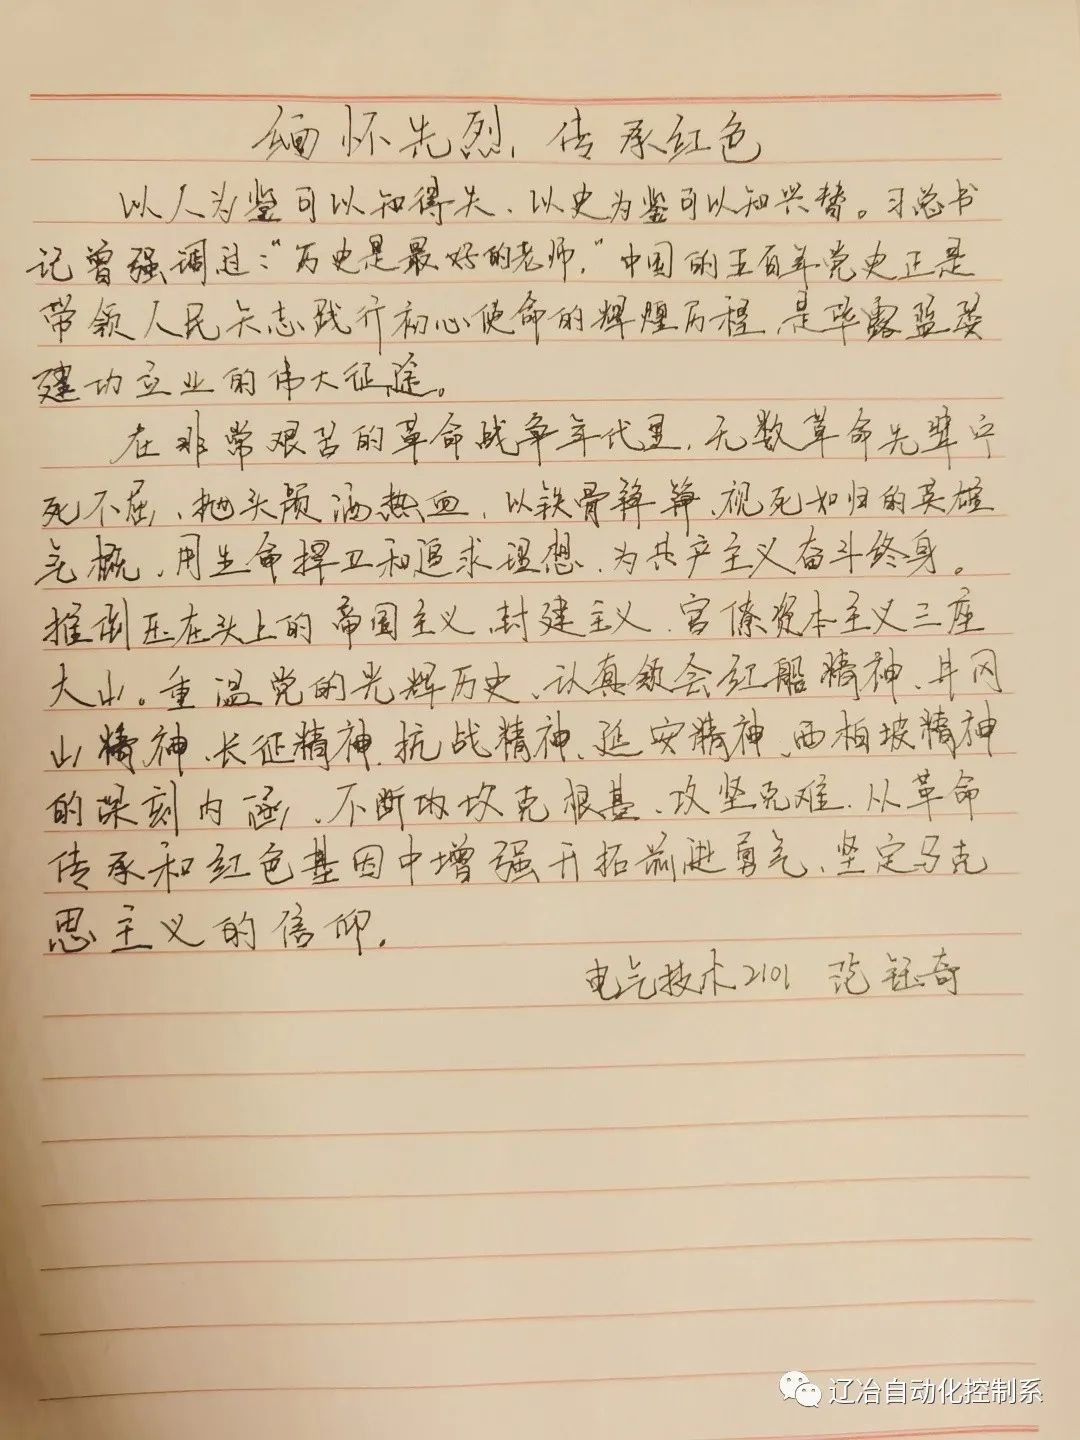 缅怀先烈,传承红色
以人为鉴可以知得失、以史为鉴可以知兴替。习总书
记曾强调过:“历史是最好的老师,”中国的五百年党史正是
带领人民矢志践行初心使命的辉煌历程,是筚露蓝蒌
建功立业的伟大征途。
在非常艰苦的革命战争年代里,无数革命先辈宁
死不屈、抛头颅洒热血、以铁骨铮铮、视死如归的英雄
气概、用生命捍卫和追求理想、为共产主义奋斗终身。
推倒压在头上的帝国主义、封建主义、官僚资本主义三座
大山。重温党的光辉历史、认真领会红船精神、井冈
山精神、长征精神、抗战精神、延安精神、西柏坡精神
的深刻内涵、不断克根基、攻坚克难、从革命
传承和红色基因中增强开拓前进勇气、坚定马克
思主义的信仰.
电气技术2101 范钰奇
辽冶自动化控制系